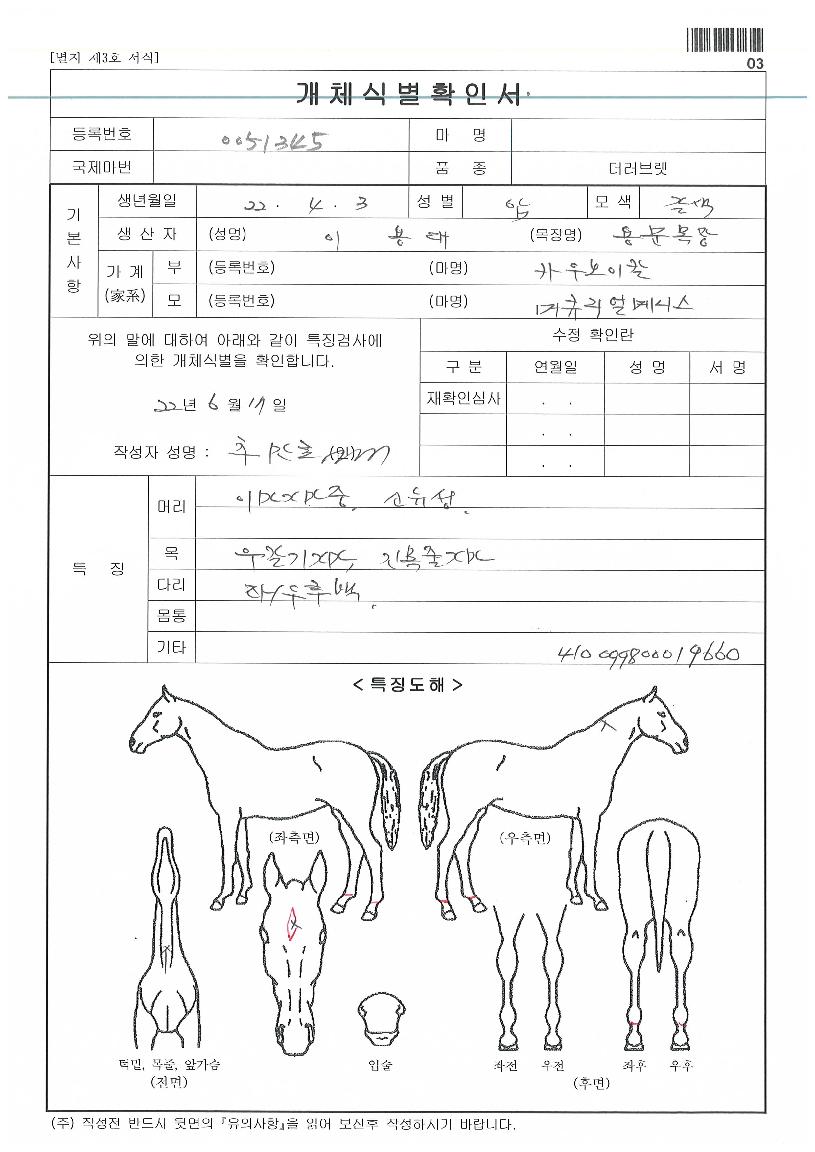 [별지 제3호 서식]
03
개체식별확인서
등록번호 0051345 마 명
국제마번 품 종 더러브렛
기본사항
생년월일 22. 4. 3 성별 암 모색 갈색
생산자 (성명) 이 용 대 (목장명) 용문목장
가계 (家系) 부 (등록번호) (마명) 카우보이칼
모 (등록번호) (마명)
위의 말에 대하여 아래와 같이 특징검사에
의한 개체식별을 확인합니다.
22년 6월 17일
작성자 성명 :
수정 확인란
구분 연월일 성명 서명
재확인심사 . .
. .
. .
특 징
머리
목
다리 좌/우후백.
몸통
기타 410099800019660
< 특징도해 >
(좌측면) (우측면)
턱밑, 목줄, 앞가슴
(전면)
입술
좌전 우전 좌후 우후
(후면)
(주) 작성전 반드시 뒷면의 『유의사항』을 읽어 보신후 작성하시기 바랍니다.